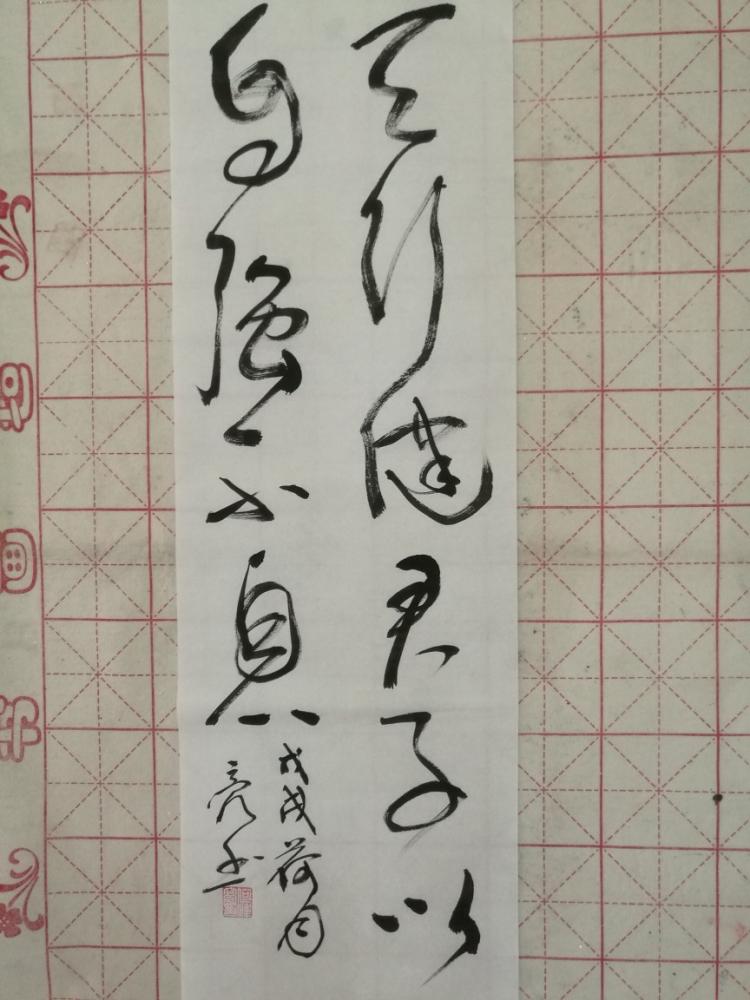 天行健君子以
自强不息
戊戌荷月
亮书